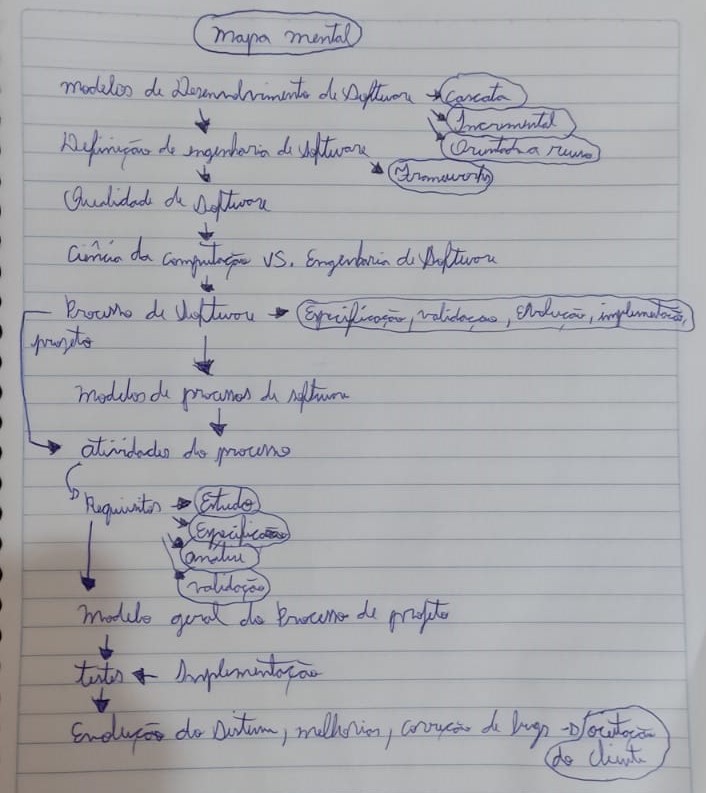 Mapa mental
Modelos de Desenvolvimento de Software → Cascata
Incremental
Definição de engenharia de software
Orientado a reuso
Frameworks
Qualidade de Software
Ciência da Computação VS. Engenharia de Software
Processo de Software → Especificação, validação, Evolução, implementação,
projeto
Modelos de processos de software
atividades do processo
Requisitos → Estudo
Especificação
análise
validação
Modelo geral do Processo de projeto
testes ← Implementação
Evolução do Sistema, melhorias, correção de bugs →
do cliente